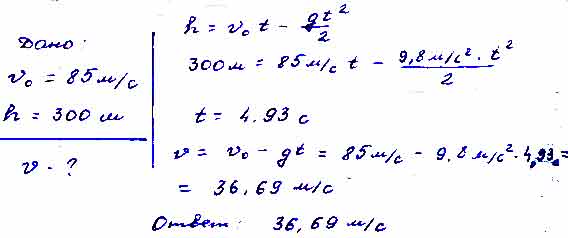 Дано:
v₀ = 85 м/с
h = 300 м
v - ?
h = v₀ t - gt²/2
300 м = 85 м/с t - 9,8 м/с² · t²/2
t = 4.93 с
v = v₀ - gt = 85 м/с - 9,8 м/с² · 4,93 =
= 36,69 м/с
Ответ: 36,69 м/с